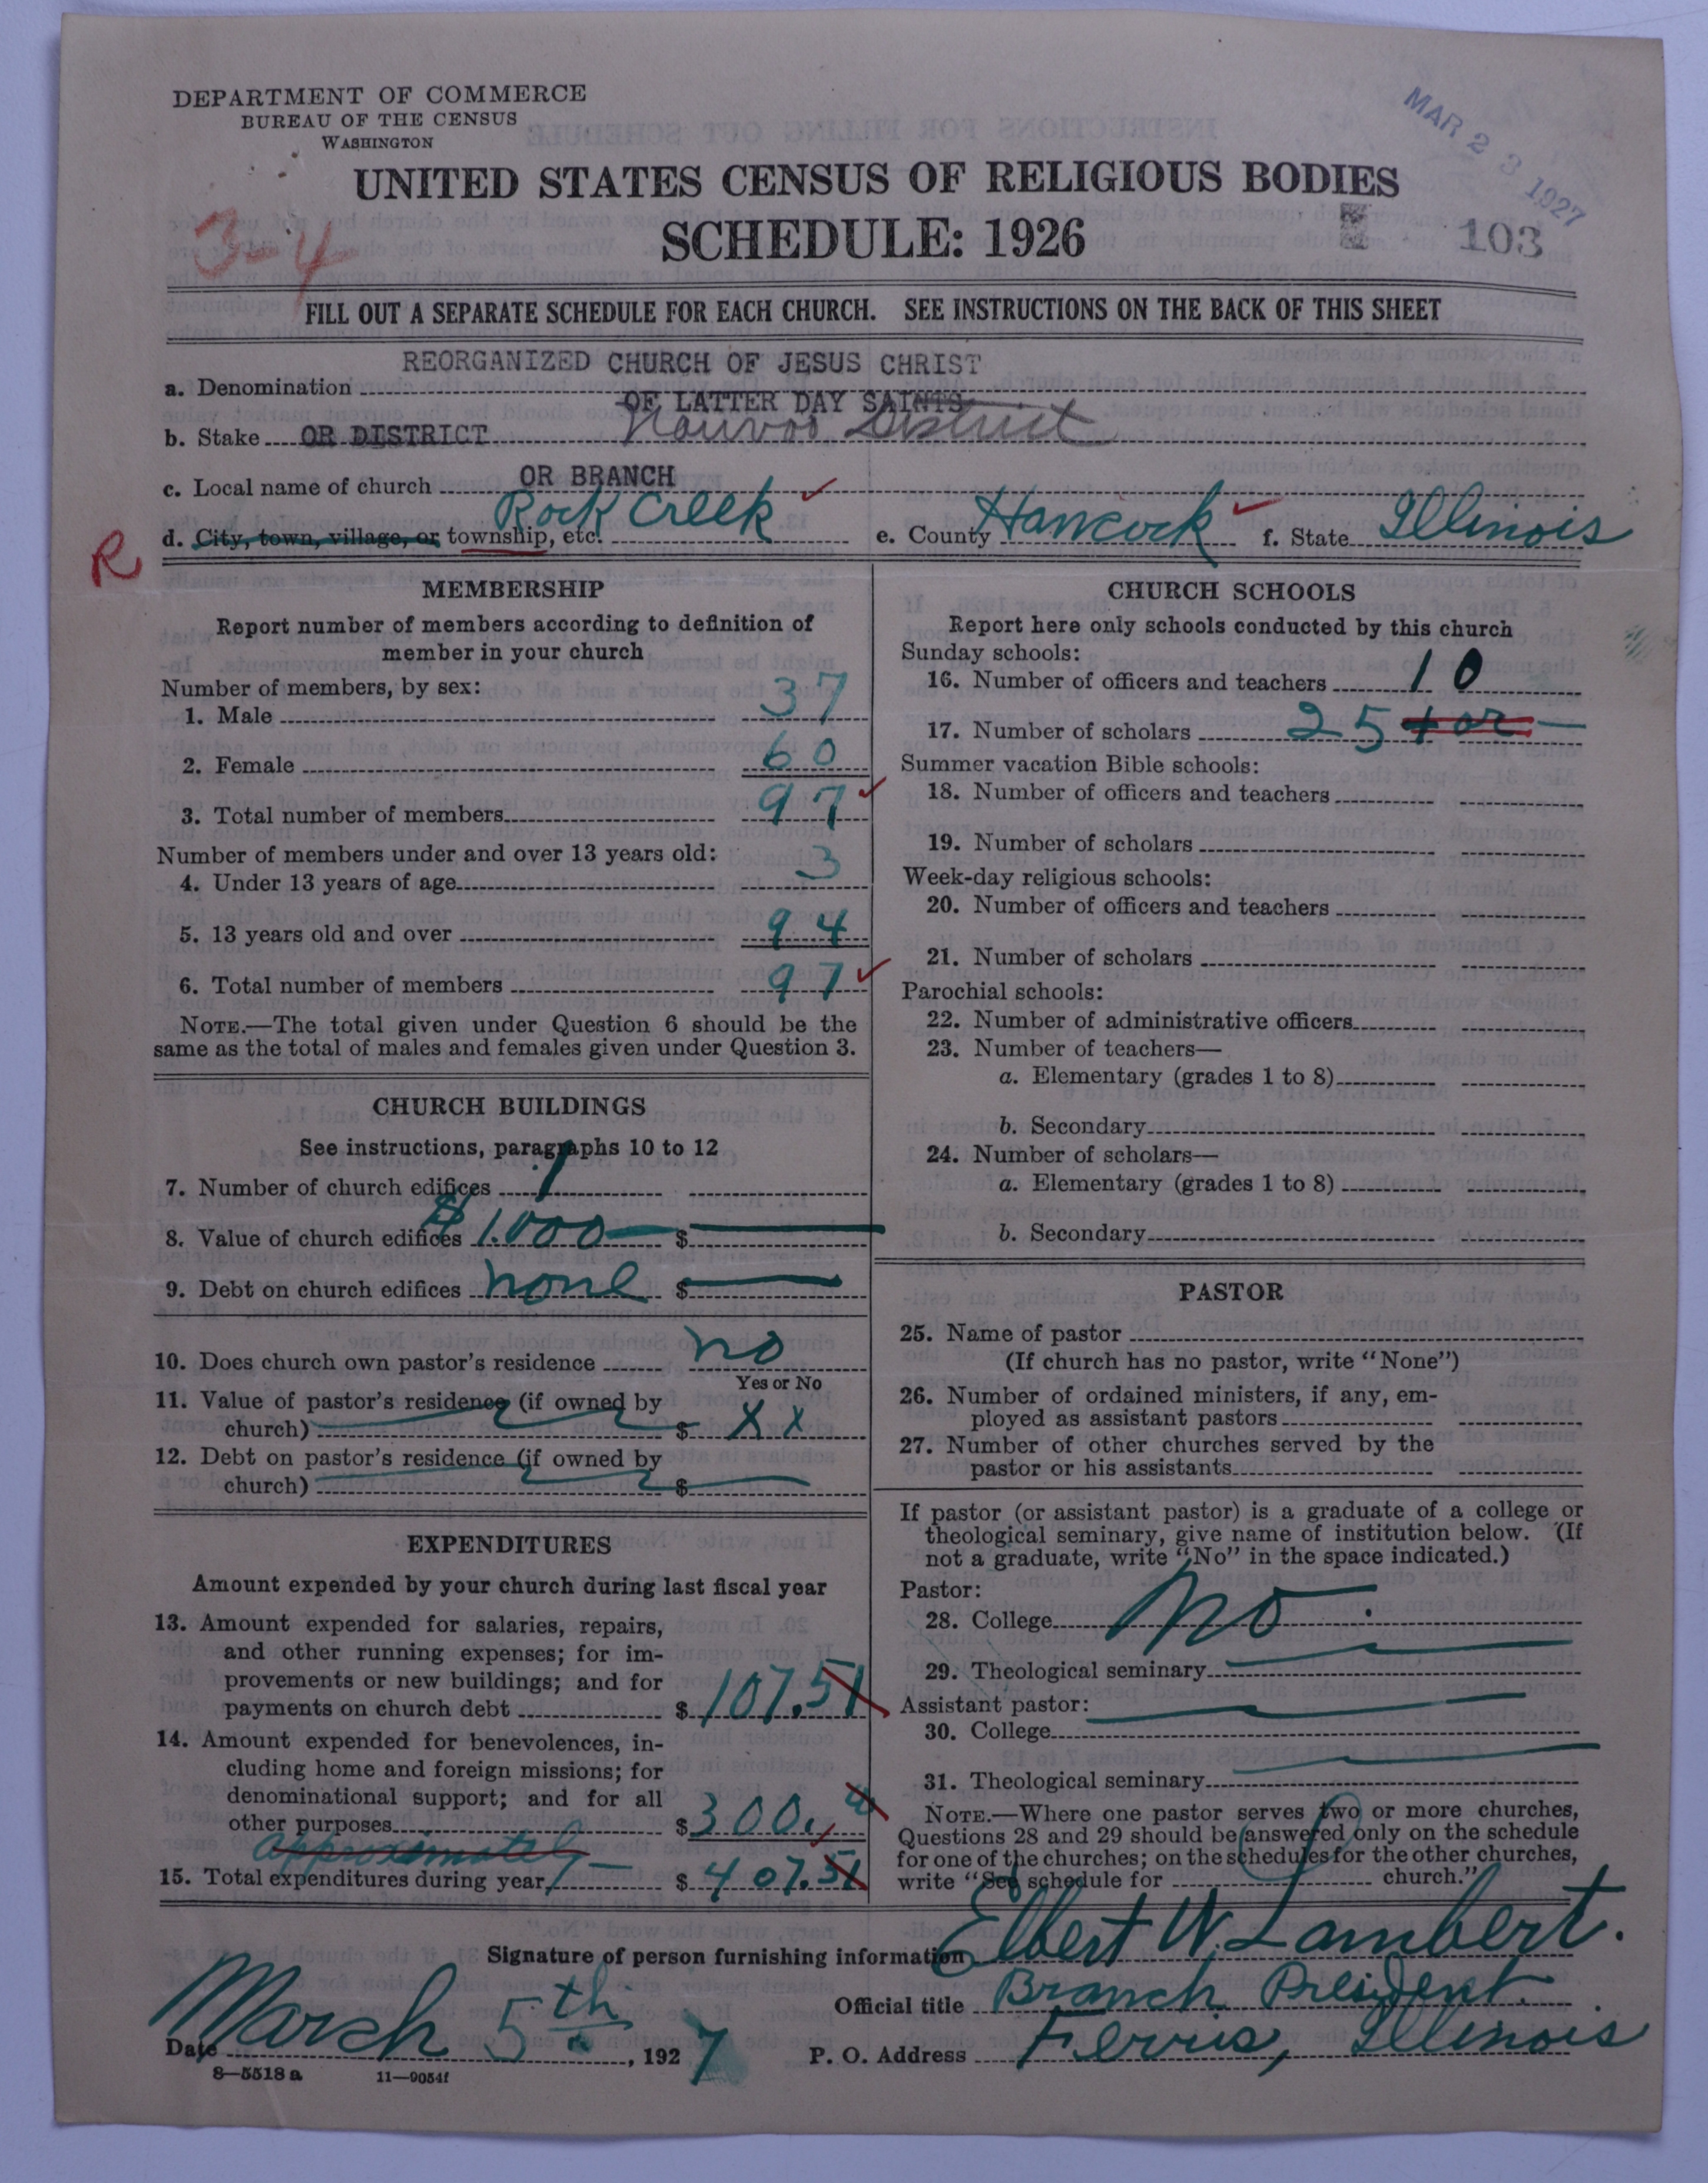 DEPARTMENT OF COMMERCE
BUREAU OF THE CENSUS
WASHINGTON
MAR 23 1927
UNITED STATES CENSUS OF RELIGIOUS BODIES
SCHEDULE: 1926
3-4
103
FILL OUT A SEPARATE SCHEDULE FOR EACH CHURCH. SEE INSTRUCTIONS ON THE BACK OF THIS SHEET
REORGANIZED CHURCH OF JESUS CHRIST
a. Denomination
OF LATTER DAY SAINTS
b. Stake OR DISTRICT Nauvoo District
OR BRANCH
c. Local name of church Rock Creek
R d. City, town, village, or township, etc. e. County Hancock f. State Illinois
MEMBERSHIP
Report number of members according to definition of
member in your church
Number of members, by sex:
1. Male 37
2. Female 60
3. Total number of members 97
Number of members under and over 13 years old:
4. Under 13 years of age 3
5. 13 years old and over 94
6. Total number of members 97
NOTE.—The total given under Question 6 should be the
same as the total of males and females given under Question 3.
CHURCH BUILDINGS
See instructions, paragraphs 10 to 12
7. Number of church edifices 1
8. Value of church edifices $1.000 $
9. Debt on church edifices none $
10. Does church own pastor's residence no
Yes or No
11. Value of pastor's residence (if owned by
church) $ X X
12. Debt on pastor's residence (if owned by
church) $
EXPENDITURES
Amount expended by your church during last fiscal year
13. Amount expended for salaries, repairs,
and other running expenses; for im-
provements or new buildings; and for
payments on church debt $ 107.51
14. Amount expended for benevolences, in-
cluding home and foreign missions; for
denominational support; and for all
other purposes $ 300.
approximately
15. Total expenditures during year $ 407.51
CHURCH SCHOOLS
Report here only schools conducted by this church
Sunday schools:
16. Number of officers and teachers 10
17. Number of scholars 25 + or —
Summer vacation Bible schools:
18. Number of officers and teachers
19. Number of scholars
Week-day religious schools:
20. Number of officers and teachers
21. Number of scholars
Parochial schools:
22. Number of administrative officers
23. Number of teachers—
a. Elementary (grades 1 to 8)
b. Secondary
24. Number of scholars—
a. Elementary (grades 1 to 8)
b. Secondary
PASTOR
25. Name of pastor
(If church has no pastor, write "None")
26. Number of ordained ministers, if any, em-
ployed as assistant pastors
27. Number of other churches served by the
pastor or his assistants
If pastor (or assistant pastor) is a graduate of a college or
theological seminary, give name of institution below. (If
not a graduate, write "No" in the space indicated.)
Pastor:
28. College No.
29. Theological seminary
Assistant pastor:
30. College
31. Theological seminary
NOTE.—Where one pastor serves two or more churches,
Questions 28 and 29 should be answered only on the schedule
for one of the churches; on the schedules for the other churches,
write "See schedule for church."
Signature of person furnishing information Elbert W. Lambert.
Official title Branch President.
Date March 5th, 1927 P. O. Address Ferris, Illinois
8—5518 a 11—9054f